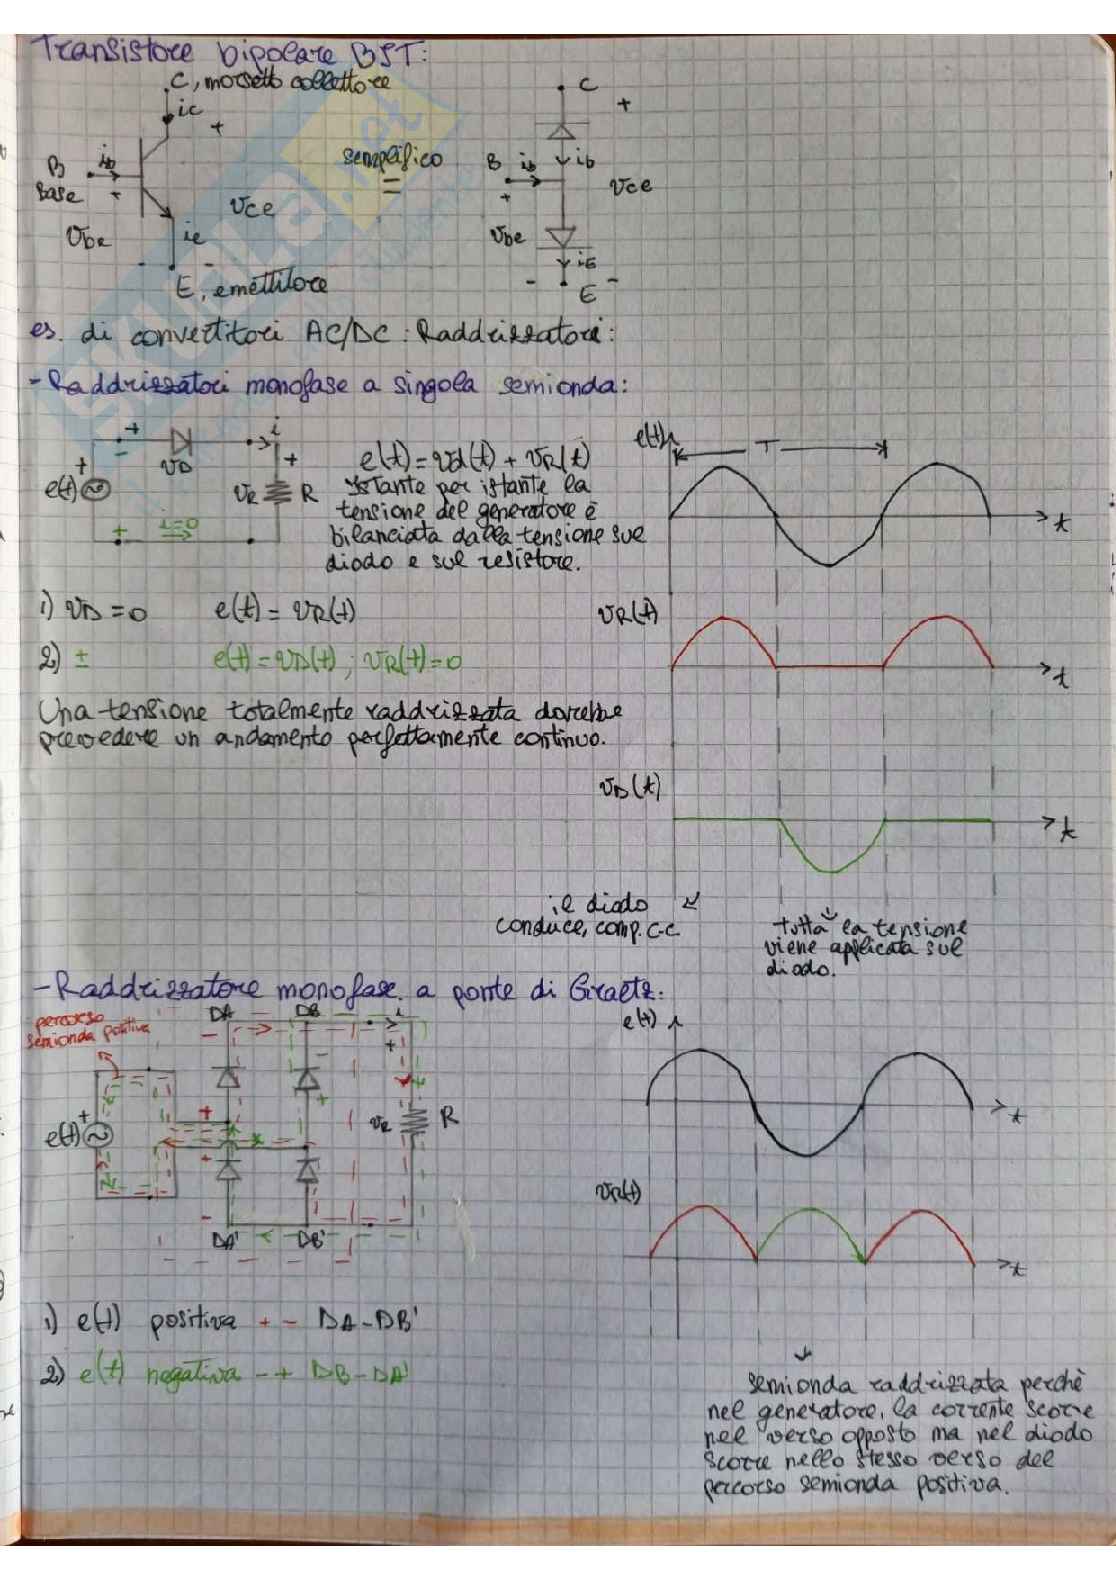 Transistore bipolare BJT:
C, morsetto collettore
ic
+
B
ib
Base
+
vbe
vce
ie
-
-
E, emettitore
semplifico
=
C
+
ib
B
ib
+
vce
vbe
iE
-
-
E
es. di convertitori AC/DC: Raddrizzatori:
- Raddrizzatori monofase a singola semionda:
+
-
i
+
vD
+
e(t)
vR
R
+
i=0
e(t) = vd(t) + vR(t)
Istante per istante la
tensione del generatore è
bilanciata dalla tensione sul
diodo e sul resistore.
e(t)
T
t
1) vD = 0 e(t) = vR(t)
2) ± e(t) = vD(t); vR(t) = 0
vR(t)
t
Una tensione totalmente raddrizzata dovrebbe
prevedere un andamento perfettamente continuo.
vD(t)
t
il diodo
conduce, comp. c.c.
tutta la tensione
viene applicata sul
diodo.
- Raddrizzatore monofase a ponte di Graetz:
percorso
semionda positiva
DA
DB
i
-
+
-
+
+
e(t)
+
+
vR
R
-
DA'
DB'
e(t)
t
vR(t)
t
1) e(t) positiva + - DA-DB'
2) e(t) negativa - + DB-DA'
semionda raddrizzata perchè
nel generatore, la corrente scorre
nel verso opposto ma nel diodo
scorre nello stesso verso del
percorso semionda positiva.